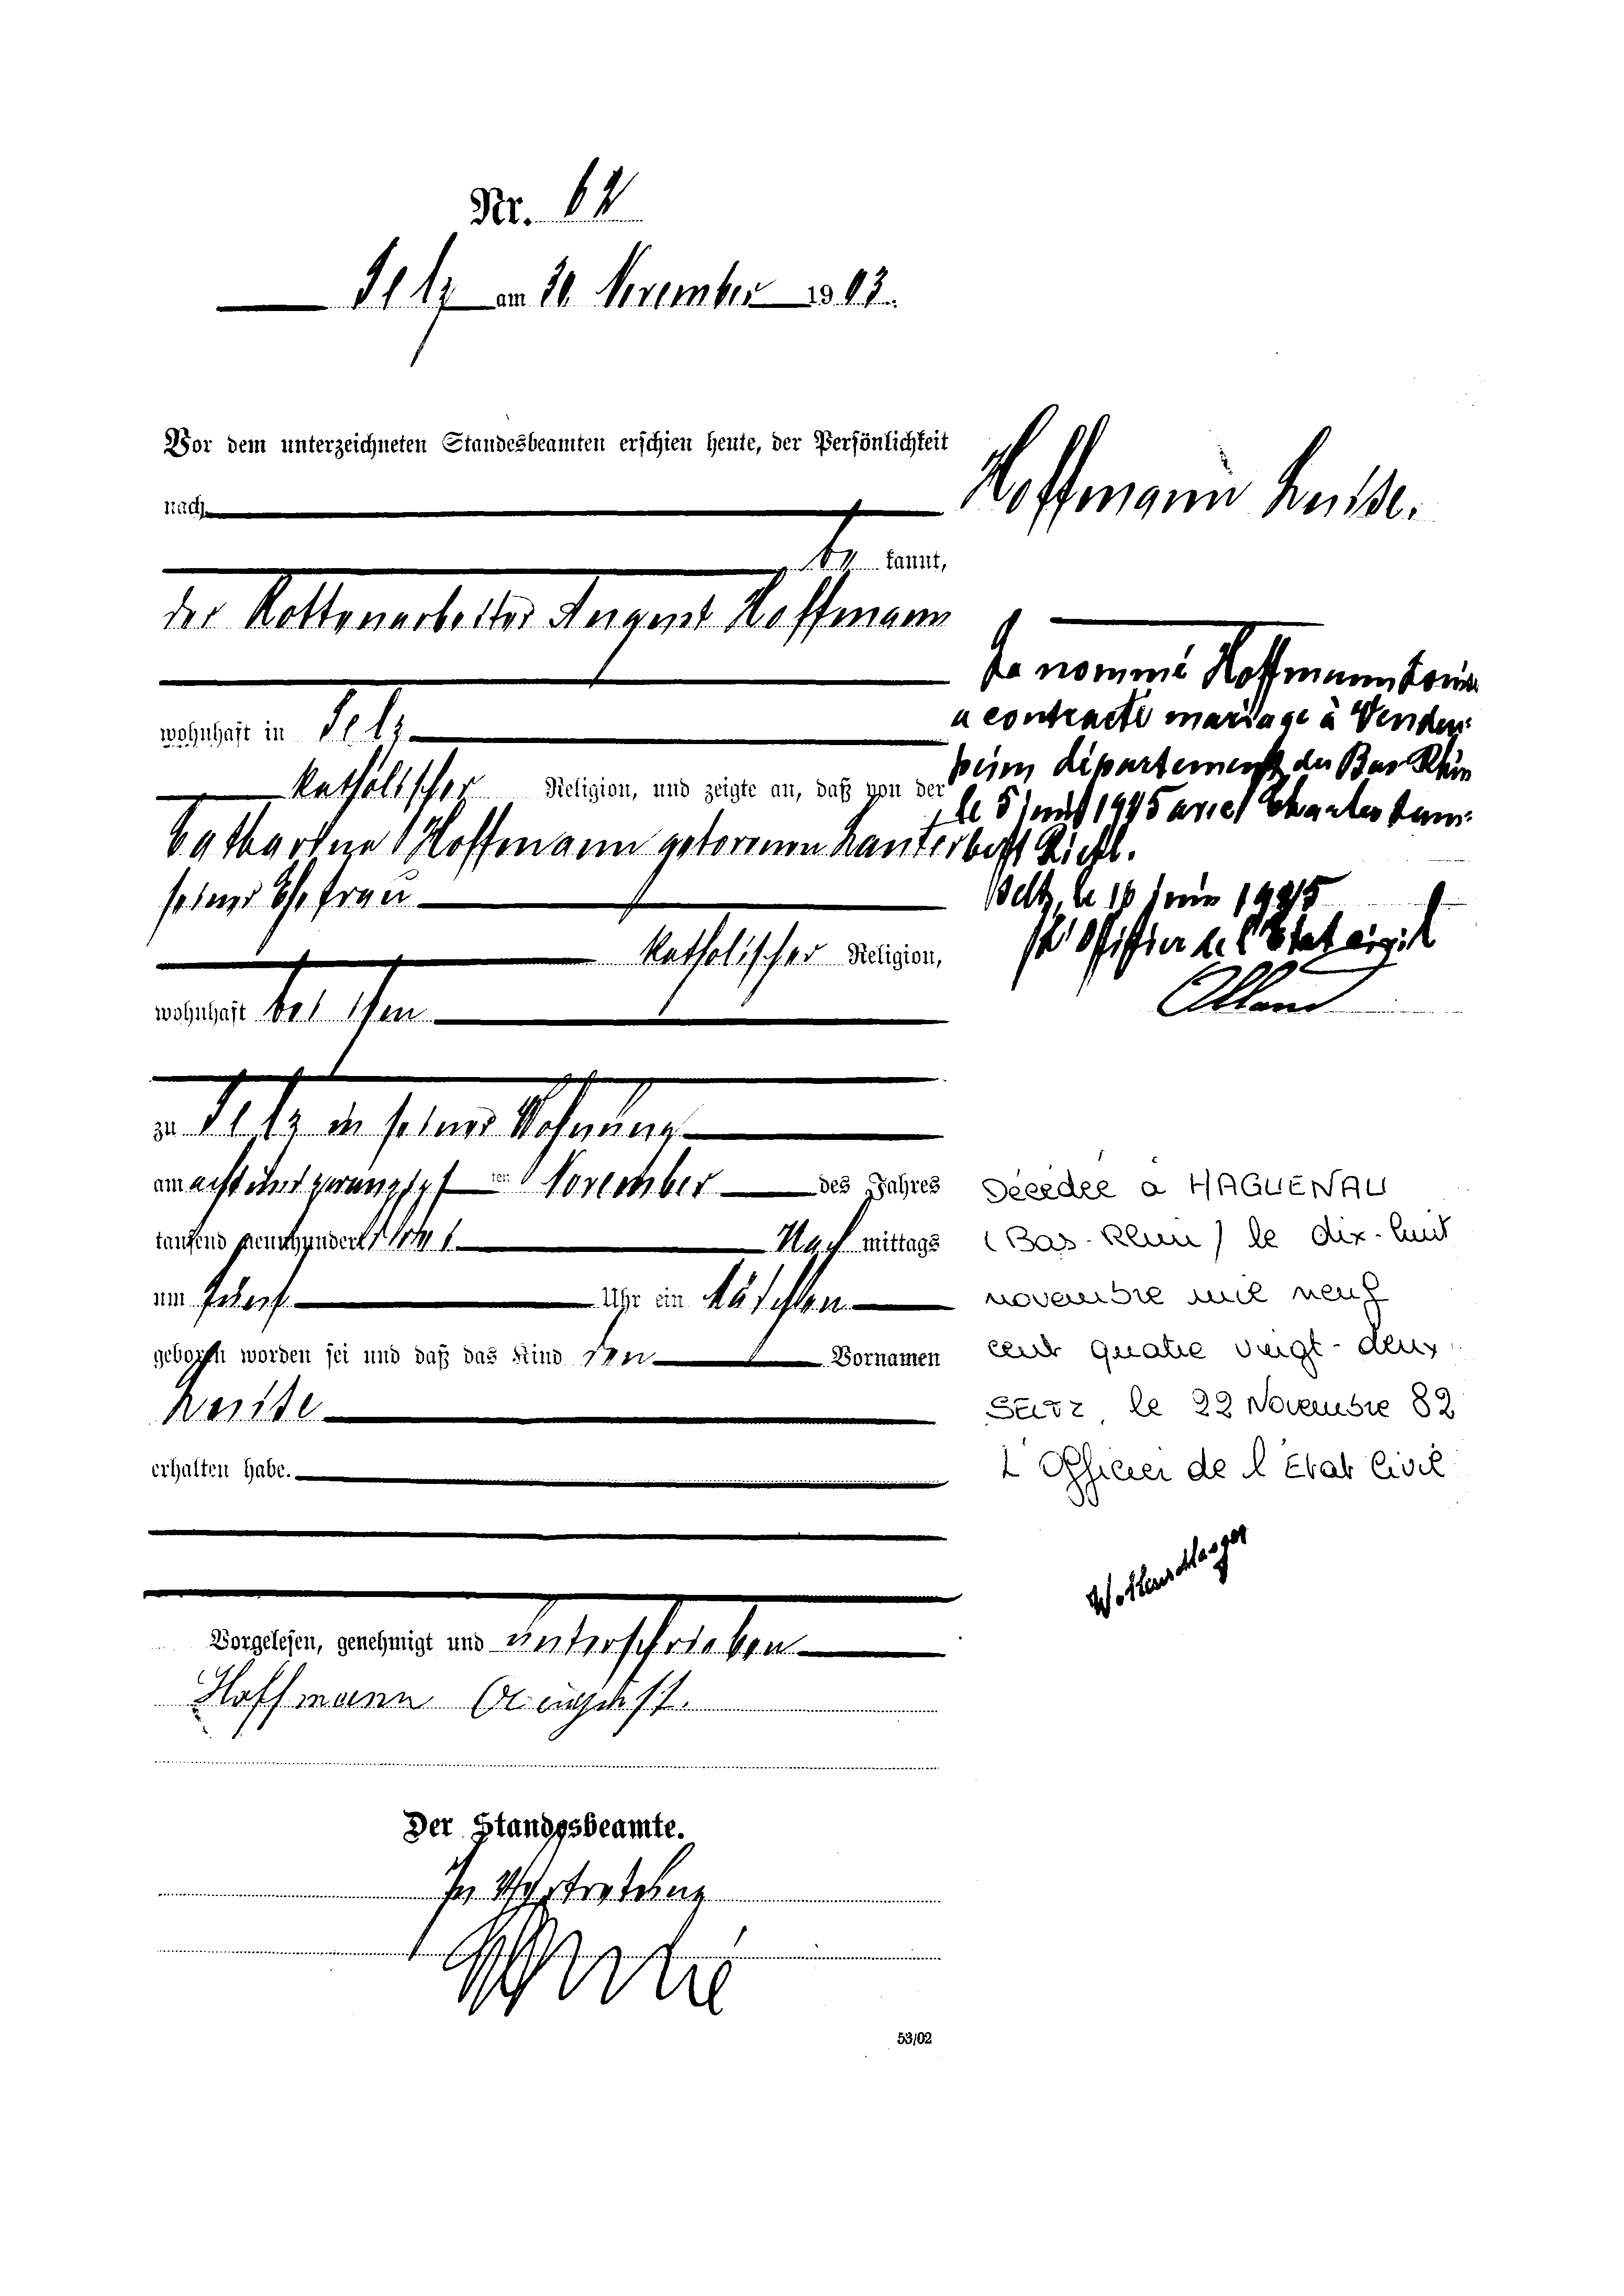 Nr. 62
Selz am 30 November 1903.
Vor dem unterzeichneten Standesbeamten erschien heute, der Persönlichkeit
nach
be kannt,
der Rottenarbeiter August Hoffmann
wohnhaft in Selz
katholischer Religion, und zeigte an, daß von der
Catharina Hoffmann geborenen Lauter
seiner Ehefrau
katholischer Religion,
wohnhaft bei ihm
zu Selz in seiner Wohnung
am acht und zwanzigsten November des Jahres
tausend neunhundert drei Nach mittags
um fünf Uhr ein Mädchen
geboren worden sei und daß das Kind den Vornamen
Luise
erhalten habe.
Vorgelesen, genehmigt und unterschrieben
Hoffmann August.
Der Standesbeamte.
In Vertretung
53/02
Hoffmann Luise.
La nommé Hoffmann Louise
a contracté mariage à Venden-
heim département du Bas Rhin
le 5 juin 1945 avec Charles Lam-
bert Riehl.
Seltz, le 16 juin 1945
L'Officier de l'Etat civil
Décédée à HAGUENAU
(Bas-Rhin) le dix-huit
novembre mil neuf
cent quatre vingt-deux
SELTZ, le 22 Novembre 82
L'Officier de l'Etat Civil